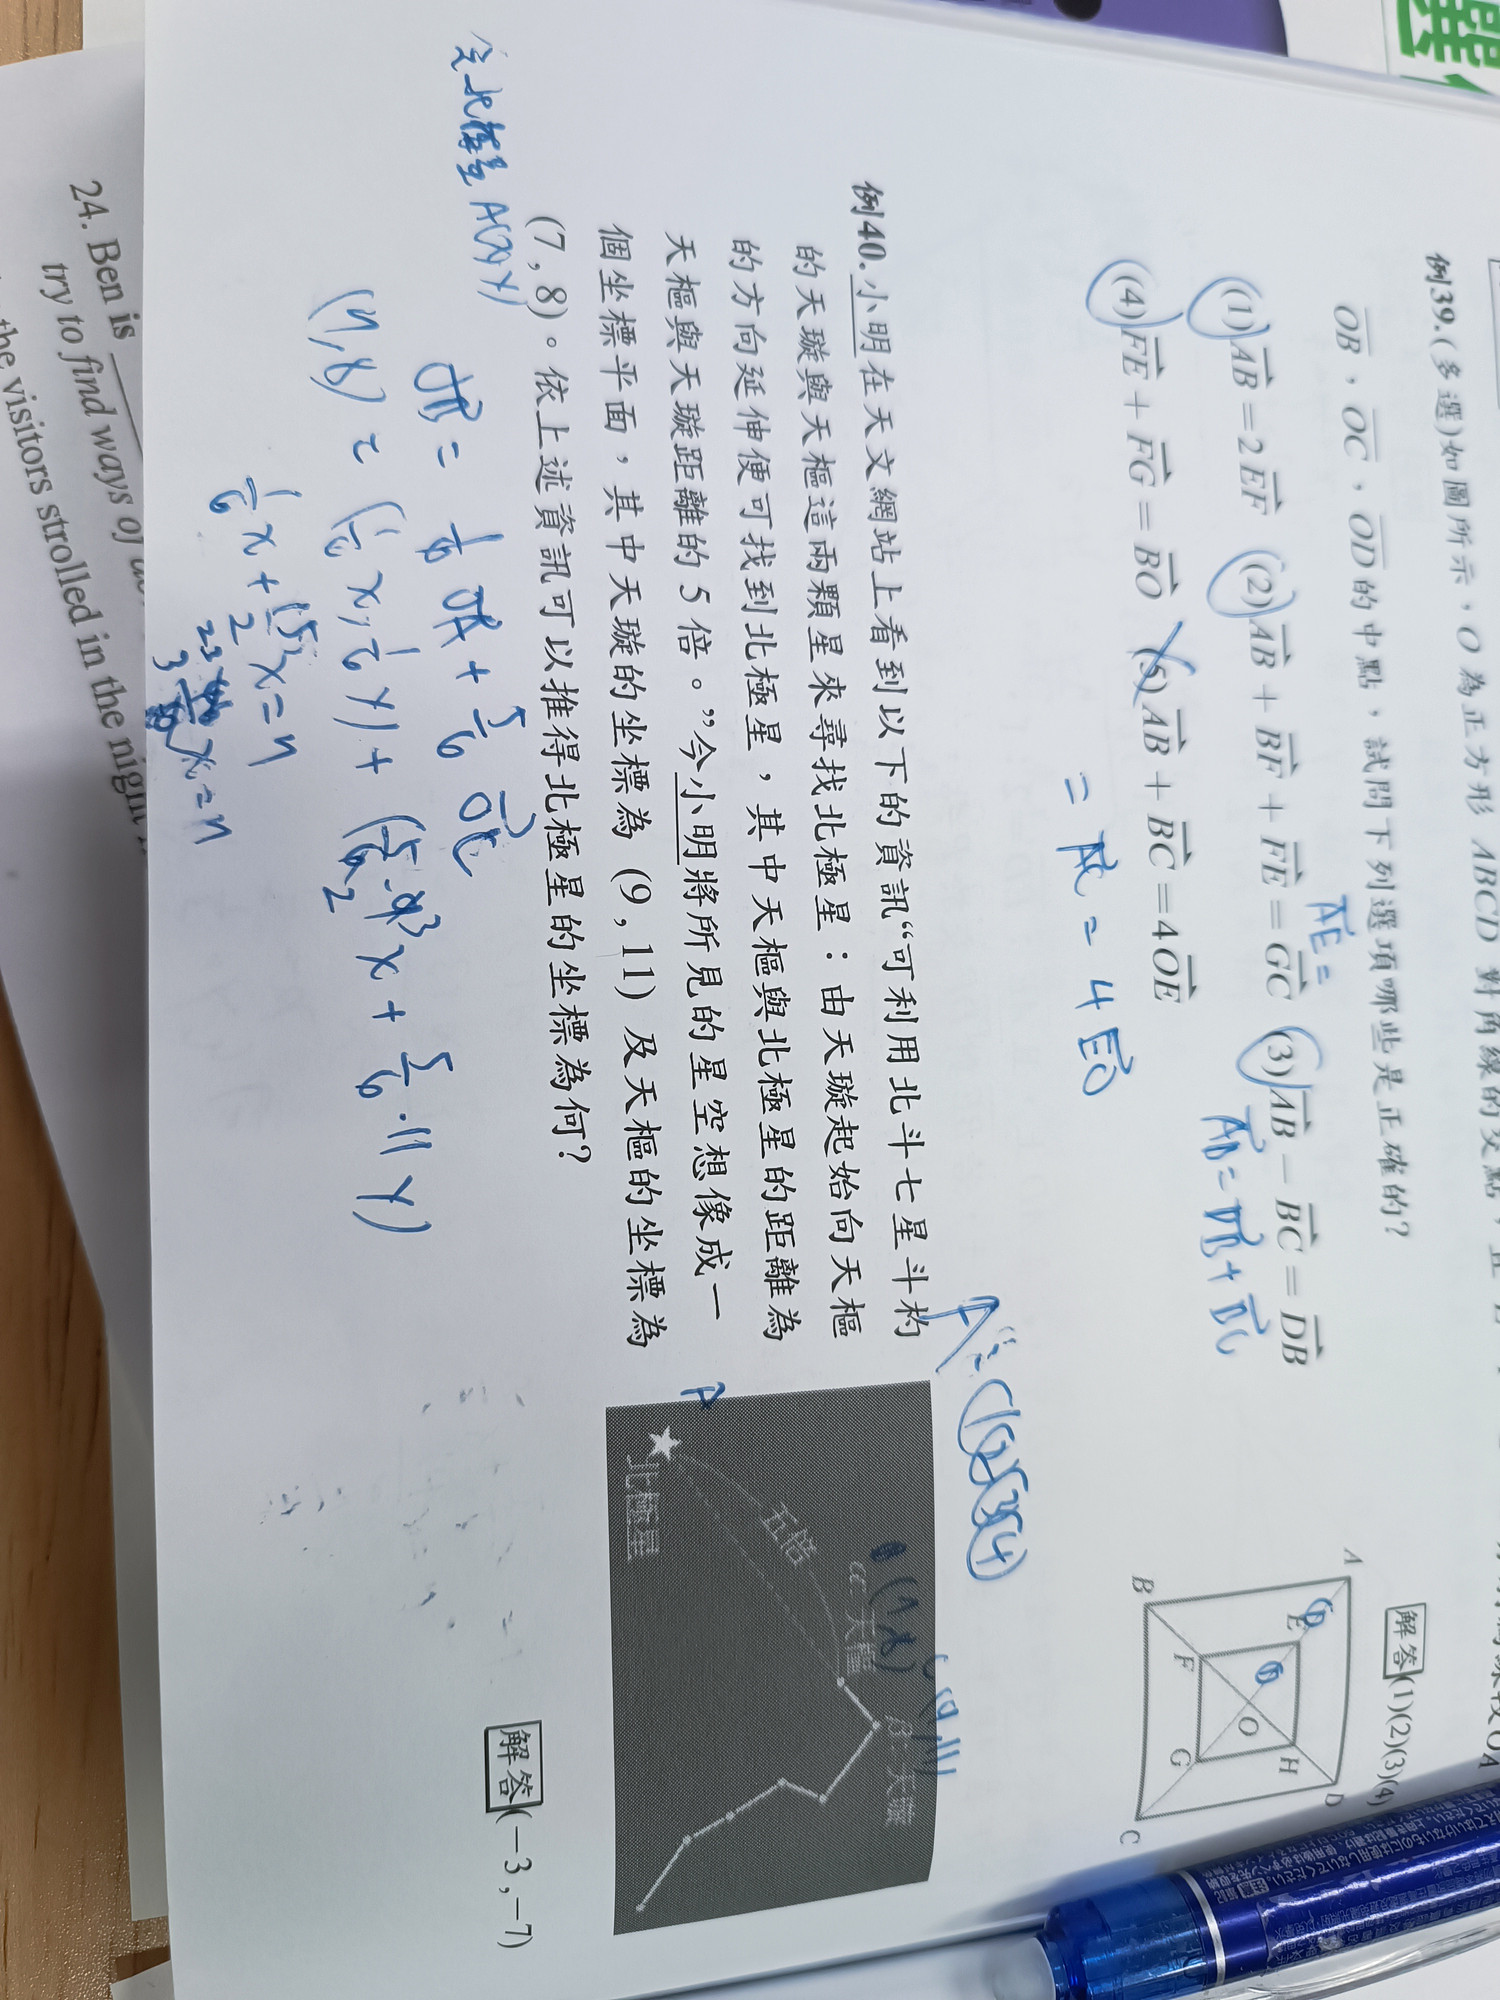 例39.(多選)如圖所示，O 為正方形 ABCD 對角線的交點，
OB、OC、OD的中點，試問下列選項哪些是正確的?
(1)AB=2EF (2)AB+BF+FE=GC (3)AB−BC=DB
(4)FE+FG=BO (5)AB+BC=4OE
AE=
AB=DB+BC
=AC=4EO
解答(1)(2)(3)(4)
A
E
H
D
O
F
G
B
C
例40.小明在天文網站上看到以下的資訊“可利用北斗七星斗杓
的天璇與天樞這兩顆星來尋找北極星：由天璇起始向天樞
的方向延伸便可找到北極星，其中天樞與北極星的距離為
天樞與天璇距離的 5 倍。”今小明將所見的星空想像成一
個坐標平面，其中天璇的坐標為 (9 , 11) 及天樞的坐標為
(7 , 8)。依上述資訊可以推得北極星的坐標為何?
A
北極星
五倍
α天樞
β天璇
(9,11)
解答(−3 ,−7)
令北極星 A(x,y)
OB = 1/6 OA + 5/6 OC
(7,8) = (1/6 x, 1/6 y) + (
x + 5/6 · 11 y)
1/6 x + 15/2 x = 7
x = 7
24. Ben is
try to find ways of
the visitors strolled in the night